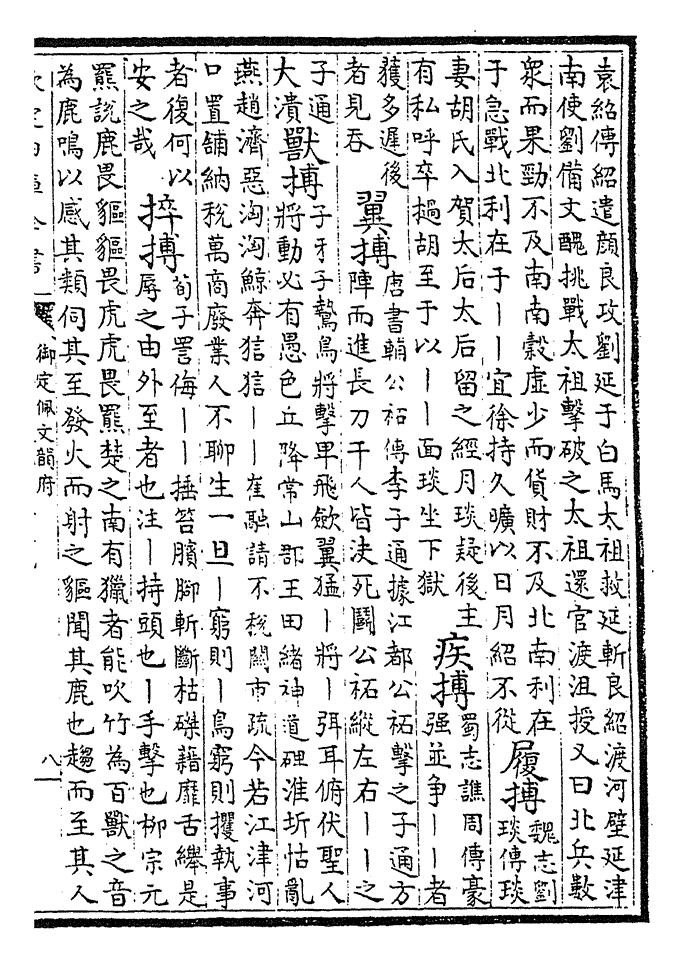 袁紹傳紹遣顔良攻劉延于白馬太祖救延斬良紹渡河壁延津
南使劉備文醜挑戰太祖擊破之太祖還官渡沮授又曰北兵數
衆而果勁不及南南穀虚少而貨財不及北南利在
于急戰北利在于丨丨宜徐持久曠以日月紹不從
履搏
魏志劉
琰傳琰
妻胡氏入賀太后太后留之經月琰疑後主
有私呼卒撾胡至于以丨丨面琰坐下獄
疾搏
蜀志譙周傳豪
强並争丨丨者
獲多遲後
者見吞
翼搏
唐書輔公祏傳李子通據江都公祏擊之子通方
陣而進長刀千人皆決死鬭公祏縱左右丨丨之
子通
大潰
獸搏
子牙子鷙鳥將擊卑飛歛翼猛丨將丨弭耳俯伏聖人
將動必有愚色丘降常山郡王田緒神道碑淮圻怙亂
燕趙濟惡洶洶鯨奔狺狺丨丨崔融請不稅關市疏今若江津河
口置舖納稅萬商廢業人不聊生一旦丨窮則丨鳥窮則攫執事
者復何以
安之哉
捽搏
荀子詈侮丨丨捶笞臏脚斬斷枯磔藉靡舌纅是
辱之由外至者也注丨持頭也丨手擊也柳宗元
羆說鹿畏貙貙畏虎虎畏羆楚之南有獵者能吹竹為百獸之音
為鹿鳴以感其類伺其至發火而射之貙聞其鹿也趨而至其人
御定佩文韻府
八